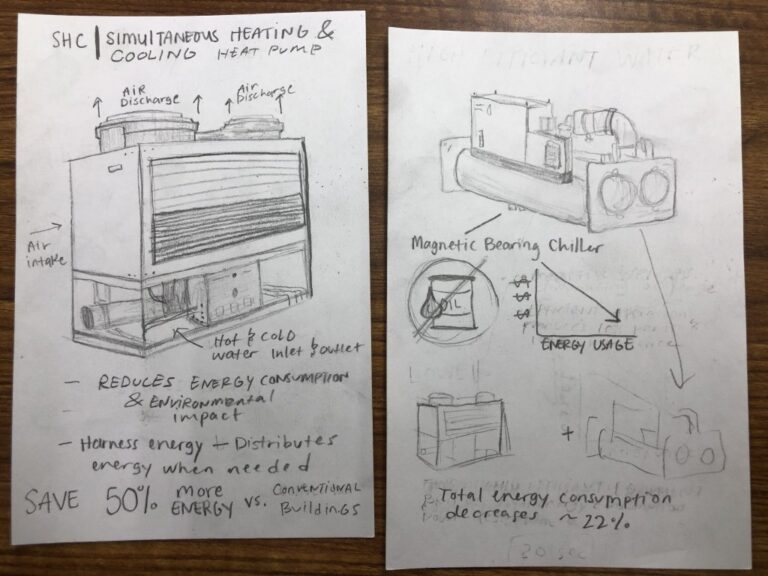 SHC | SIMULTANEOUS HEATING &
COOLING HEAT PUMP
AIR
Discharge
Air
Discharge
Air
intake
Hot & COLD
water Inlet & outlet
— REDUCES ENERGY CONSUMPTION
& ENVIRONMENTAL
impact
— Harness energy + Distributes
energy when needed
SAVE 50% more
ENERGY vs. CONVENTIONAL
BuildinGS
Magnetic Bearing Chiller
OIL
$$
$$
$$
ENERGY USAGE
+
Total energy consumption
decreases ~ 22%
30 sec